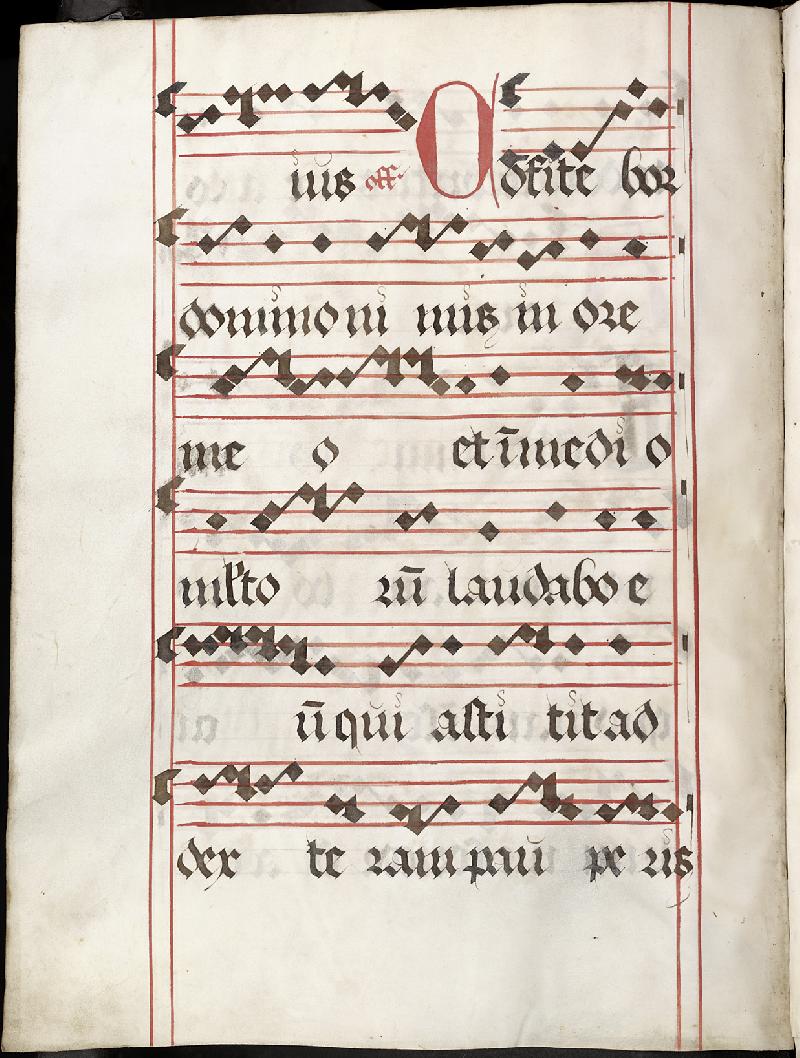 ius off. Cōfite bor
domino ni mis in ore
me o et ī medi o
mlto rū laudabo e
ū qui asti tit ad
dex te ram pau pe ris